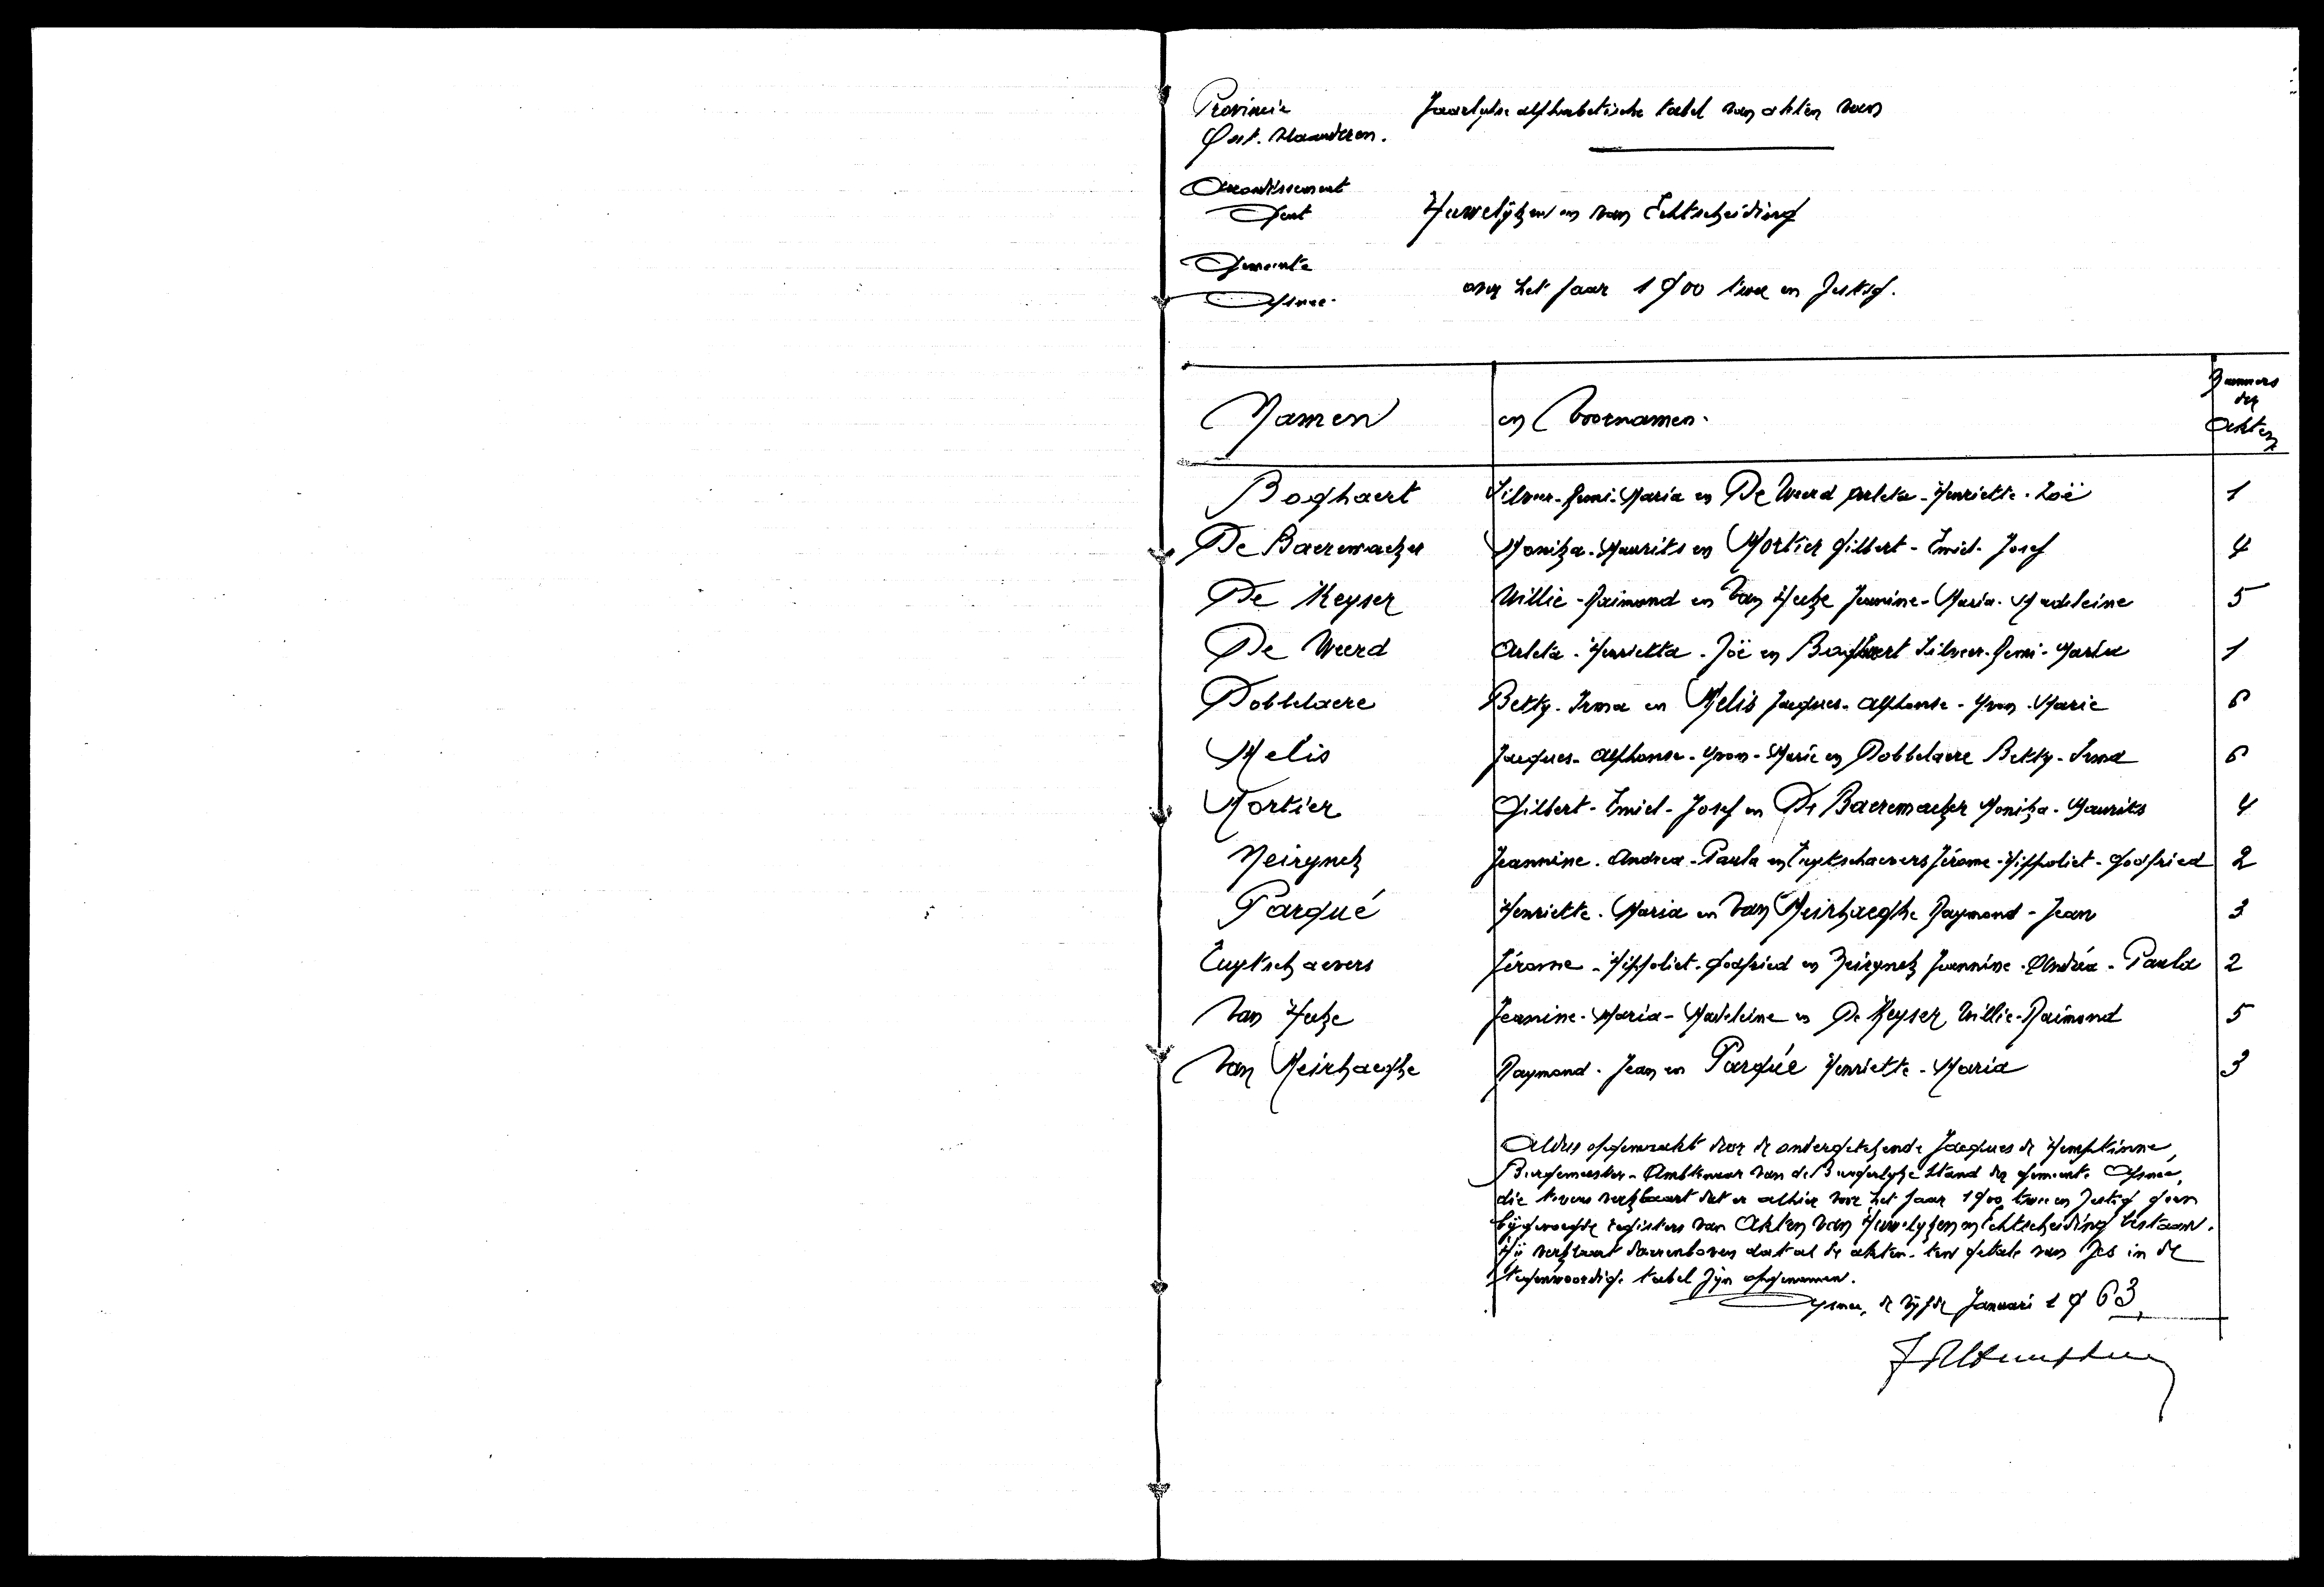 Provincie
Oost. Vlaanderen.
Jaarlykse alphabetische tabel van akten van
Arrondissement
Gent
Huwelijken en van Echtscheiding
Gemeente
Afsnee.
over het jaar 1900 twee en zestig.
Namen en Voornamen.
Nummers
der
Akten
Boghaert Silveer-Remi-Maria en De Weerd Arleta-Henriette-Zoë 1
De Baeremaeker Monika-Maurits en Mortier Gilbert-Emiel-Josef 4
De Keyser Willie-Raimond en Van Hecke Jeanine-Maria-Madeleine 5
De Weerd Arleta-Henrietta-Zoë en Boghaert Silveer-Remi-Maria 1
Dobbelaere Betty-Irma en Melis Jacques-Alphonse-Yvon-Marie 6
Melis Jacques-Alphonse-Yvon-Marie en Dobbelaere Betty-Irma 6
Mortier Gilbert-Emiel-Josef en De Baeremaeker Monika-Maurits 4
Neirynck Jeannine-Andrea-Paula en Tuytschaevers Jérome-Hippoliet-Godfried 2
Parqué Henriette-Maria en Van Meirhaeghe Raymond-Jean 3
Tuytschaevers Jérome-Hippoliet-Godfried en Neirynck Jeannine-Andréa-Paula 2
Van Hecke Jeanine-Maria-Madeleine en De Keyser Willie-Raimond 5
Van Meirhaeghe Raymond-Jean en Parqué Henriette-Maria 3
Aldus opgemaakt door de ondergetekende Jacques de Hemptinne,
Burgemeester-Ambtenaar van de Burgerlyke Stand der gemeente Afsnee,
die tevens verklaart dat er alhier voor het jaar 1900 twee en zestig geen
bijgevoegde registers van Akten van Huwelyken en Echtscheiding bestaan.
Hij verklaart daarenboven dat al de akten ten getale van zes in de
tegenwoordige tabel zijn opgenomen.
Afsnee, de vijfde Januari 1963.